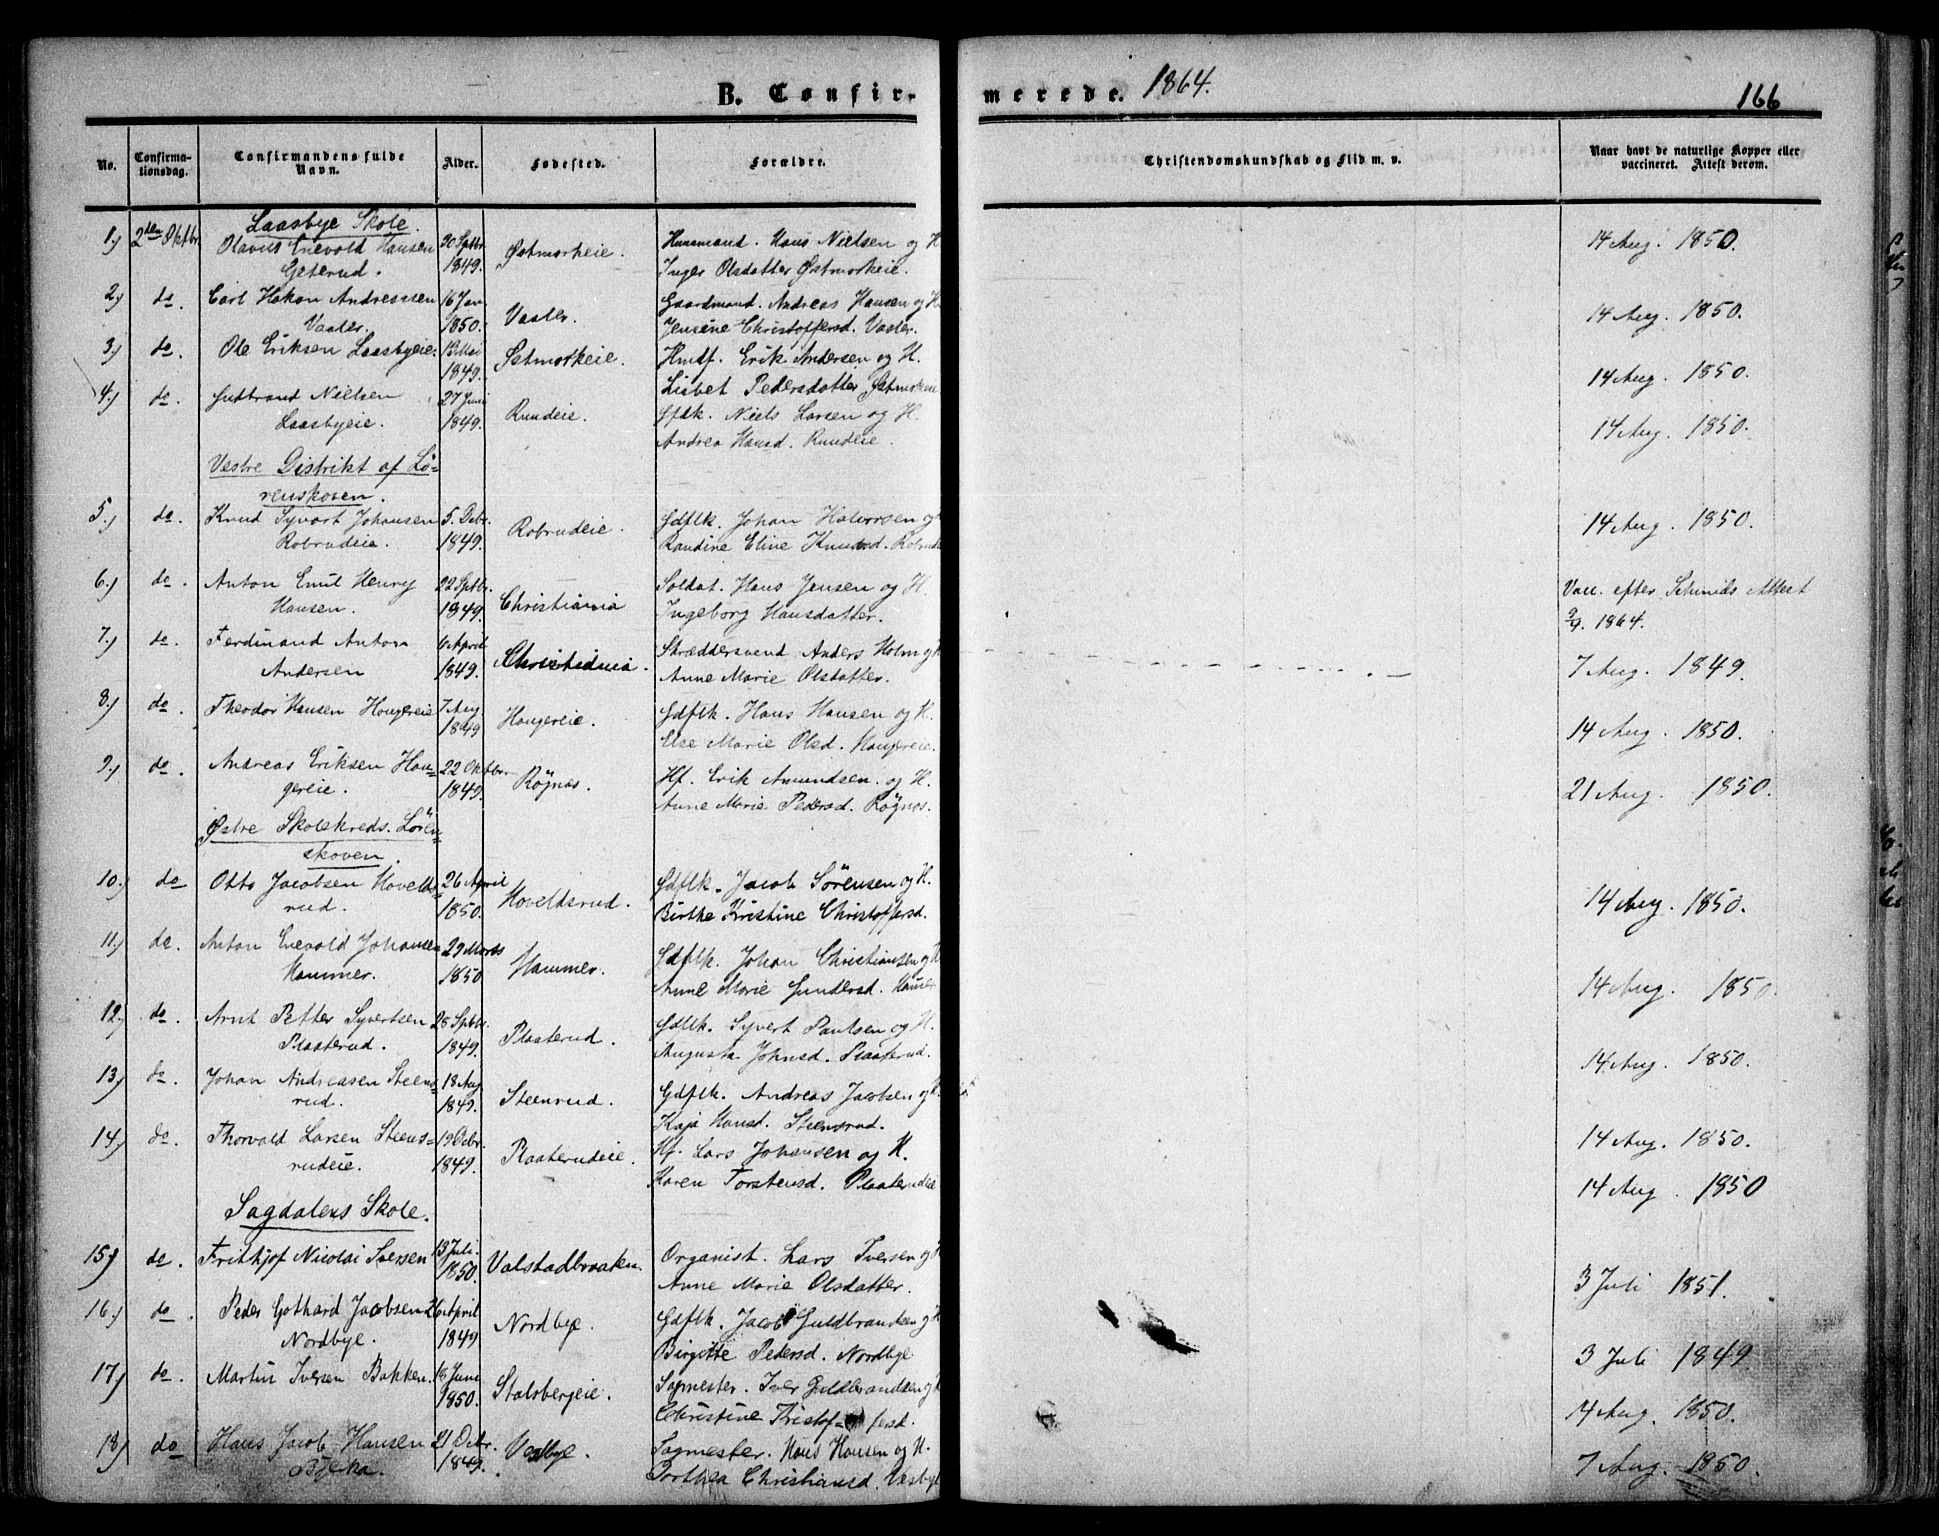 B. Confirmerede. 1864.
166
No. Confirmationsdag. Confirmandens fulde Navn. Alder. Fødested. Forældre. Christendomskundskab og Flid m. v. Naar havt de naturlige Kopper eller vaccineret. Attest derom.
Laasbye Skole.
1.) 2den Oktbr. Olavus Enevold Hansen 20 Sptbr. Østmorkeie. Huusmand. Hans Nielsen og H. 14 Aug. 1850.
Geterud. 1849. Inger Olsdatter Østmorkeie.
2.) do. Carl Hakon Andreassen 16 Jan. Vaaler. Gaardmand. Andreas Hansen og H. 14 Aug. 1850.
Vaaler. 1850. Jensine Christoffersd. Vaaler.
3.) do. Ole Eriksen Laasbyeie. 13 Mai Østmorkeie. Hmdf. Erik Andersen og H. 14 Aug. 1850.
1849. Lisbet Pedersdatter Østmorkeie
4.) do. Gulbrand Nielsen 27 Juni Rundeie. Gflk. Niels Larsen og H. 14 Aug. 1850.
Laasbyeie. 1849. Andrea Hansd. Rundeie.
Vestre Distrikt af Lö-
renskoven.
5.) do. Knud Syvart Johansen 5. Debr. Robrudeie. Gdflk. Johan Halvorsen og 14 Aug. 1850.
Robrudeie. 1849. Randine Eline Knudsd. Robrude
6.) do. Anton Emil Henry 22 Sptbr. Christiania Soldat. Hans Jensen og H. Vacc. efter Schmids Attest
Hansen. 1849. Ingeborg Hansdatter. 2/9. 1864.
7.) do. Ferdinand Anton April Christiania. Skræddersvend Anders Holm og H 7 Aug. 1849.
Andersen 1849. Anne Marie Olsdatter.
8.) do. Theodor Hansen Hougereie 7 Aug Hougereie. Gdflk. Hans Hansen og H. 14 Aug. 1850.
1849 Else Marie Olsd. Hougereie.
9.) do. Andreas Eriksen Hou- 22 Oktbr. Rögnas. Hf. Erik Amundsen og H. 21 Aug. 1850.
gereie. 1849. Anne Marie Pedersd. Rögnas.
Østre Skolekreds. Lören-
skoven.
10.) do Otto Jacobsen Hovelds- 26 April Hoveldsrud. Gdflk. Jacob Sörensen og H. 14 Aug. 1850.
rud. 1850. Birthe Kristine Christoffersd.
11.) do. Anton Enevold Johansen 29 Marts Hammer. Gdflk. Johan Christiansen og H 14 Aug. 1850.
Hammer. 1850 Anne Marie Gundersd. Hamer
12.) do. Arnt Petter Syvertsen 28 Sptbr. Plaaterud. Gdflk. Syvert Paulsen og H. 14 Aug. 1850.
Plaaterud. 1849. Augusta Johnsd. Plaaterud.
13.) do. Johan Andreasen Steens- 18 Aug. Steenrud. Gdflk. Andreas Jacobsen og H. 14 Aug. 1850.
rud. 1849. Kaja Hansd. Steensrud.
14.) do. Thorvald Larsen Steens- 19 Debr. Plaaterudeie. Hf. Lars Johansen og H. 14 Aug. 1850
rudeie. 1849. Karen Torstensd. Plaaterudeie
Sagdalens Skole.
15.) do. Frithjof Nicolai Iversen 13 Juli. Valstadbraaten. Organist. Lars Iversen og H 3 Juli 1851.
1850. Anne Marie Olsdatter.
16.) do. Peder Gothard Jacobsen 26 April Nordbye. Gdflk. Jacob Guldbrandsen og H 3 Juli 1849
Nordbye. 1849 Birgitte Pedersd. Nordbye
17.) do. Martin Iversen Bakken. 16 Juni Stalsbergeie. Sagmester. Iver Guldbrandsen og H 14 Aug. 1850.
1850. Christine Kristof- fersd.
18.) do Hans Jacob Hansen 21 Debr. Vesbye. Sagmester. Hans Hansen og H. 7 Aug. 1850.
Bjerka. 1849. Dorthea Christiansd. Væsbye